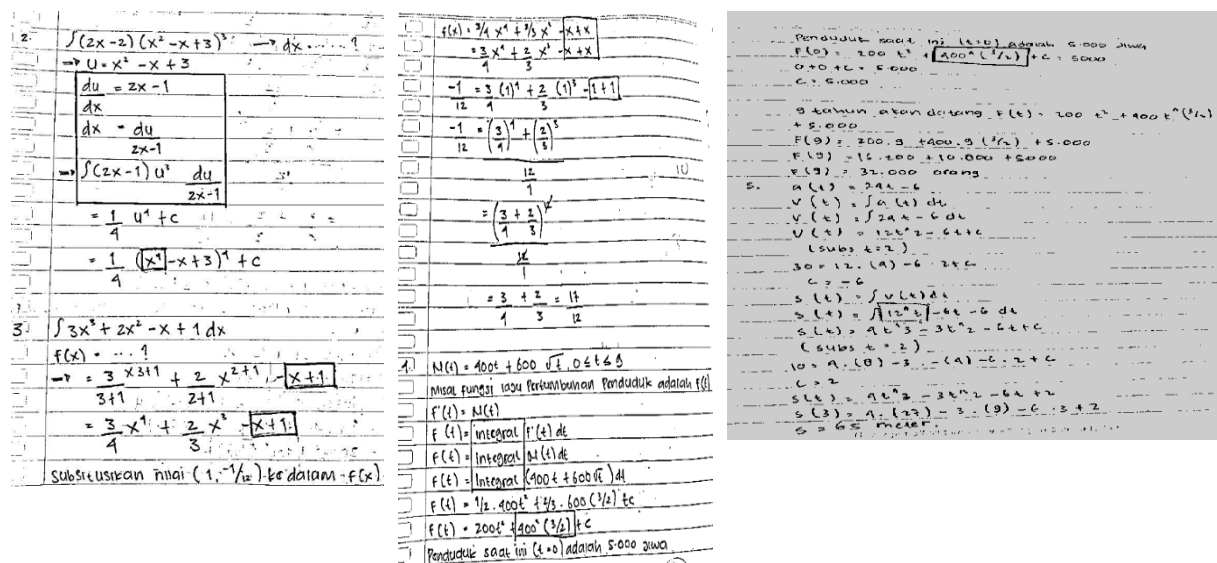 2. ∫(2x-2)(x²-x+3)³ → dx.....?
→ u = x² - x + 3
du/dx = 2x-1
dx = du/2x-1
→ ∫(2x-1) u³ du/2x-1
= 1/4 u⁴ + c
= 1/4 (x⁴-x+3)⁴ + c
3. ∫3x³ + 2x² - x + 1 dx
f(x) = ...?
→ = 3/3+1 x³⁺¹ + 2/2+1 x²⁺¹ - x+1
= 3/4 x⁴ + 2/3 x³ - x+1
Subsitusikan nilai (1, -1/12) ke dalam f(x)
f(x) = 3/4 x⁴ + 2/3 x³ - x+x
= 3/4 x⁴ + 2/3 x³ - x+x
-1/12 = 3/4 (1)⁴ + 2/3 (1)³ - 1+1
-1/12 = (3/4)⁴ + (2/3)³
12/1
= (3/4 + 2/3)
12/1
= 3/4 + 2/3 = 17/12
4. N(t) = 400t + 600 √t, 0≤t≤9
Misal fungsi laju Pertumbuhan Penduduk adalah f(t)
F'(t) = N(t)
F (t) = integral F'(t) dt
F(t) = Integral N(t) dt
F(t) = Integral (400t + 600√t) dt
F(t) = 1/2 . 400t² + 2/3 . 600 (3/2) + c
F(t) = 200t² + 400 (3/2) + c
Penduduk saat ini (t=0) adalah 5.000 jiwa
Penduduk saat ini (t=0) adalah 5.000 jiwa
F(0) = 200 t² + 400^(3/2) + c = 5000
0 + 0 + c = 5.000
c = 5.000
9 tahun akan datang F(t) = 200 t² + 400 t^(3/2)
+ 5.000
F(9) = 200.9 + 400.9 (3/2) + 5.000
F(9) = 16.200 + 10.800 + 5000
F(9) = 32.000 orang
5. a(t) = 24t - 6
v(t) = ∫a(t) dt
v(t) = ∫24t - 6 dt
v(t) = 12t^2 - 6t + c
(subs t = 2)
30 = 12 . (4) - 6 . 2 + c
c = -6
s(t) = ∫v(t) dt
s(t) = ∫12^t - 6t - 6 dt
s(t) = 4t^3 - 3t^2 - 6t + c
(subs t = 2)
10 = 4 . (8) - 3 . (4) - 6 . 2 + c
c = 2
s(t) = 4t^3 - 3t^2 - 6t + 2
s(3) = 4 . (27) - 3 . (9) - 6 . 3 + 2
s = 65 meter.